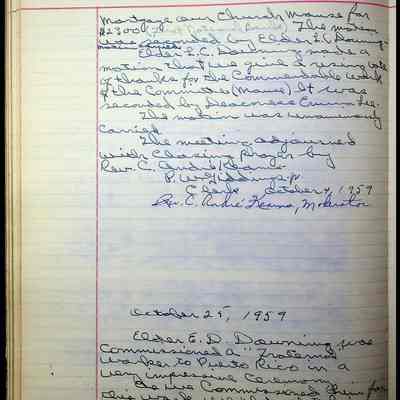 Mortgage our Church Manse for
$2300 The motion
was seconded by Elder E. C. Downing
motion carried.
Elder E. C. Downing made a
motion that we give a rising vote
of thanks for the Commendable work
of the Committee (Manse) It was
seconded by Deaconess Emma Lee.
The motion was unanimously
carried.
The meeting adjourned
with Closing Prayer by
Rev. C. André Kearns
P. W. Giddings
Clerk October 4, 1959
Rev. C. André Kearns, Moderator
October 25, 1959
Elder E. D. Downing was
Commissioned a "Fraternal
Worker to Puerto Rico in a
very impressive Ceremony
Commissioned for